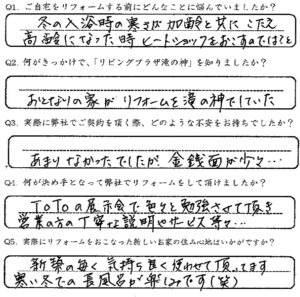 Q1. ご自宅をリフォームする前にどんなことに悩んでいましたか?
冬の入浴時の寒さが加齢と共にこたえ
高齢になった時ヒートショックをおこすのではと
Q2. 何がきっかけで、「リビングプラザ滝の神」を知りましたか?
おとなりの家がリフォームを滝の神でしていた
Q3. 実際に弊社でご契約を頂く際、どのような不安をお持ちでしたか?
あまりなかったでしたが 金銭面が少々…
Q4. 何が決め手となって弊社でリフォームをして頂けましたか?
TOTOの展示会で色々と勉強させて頂き
営業の方の丁寧な説明やサービス等々…
Q5. 実際にリフォームをおこなった新しいお家の住み心地はいかがですか?
新築の如く 気持ち良く使わせて頂いてます
寒い冬での長風呂が楽しみです(笑)